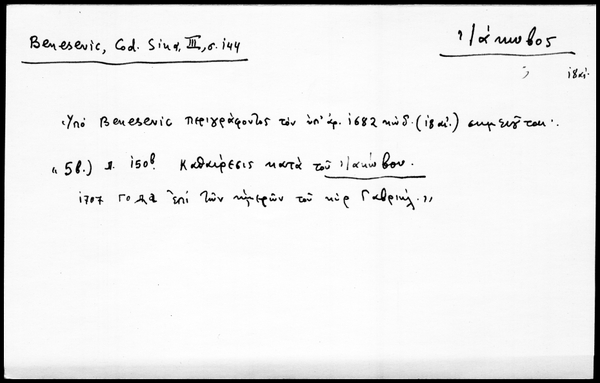 Benesevic, Cod. Sina, III, σ. 144
Ἰάκωβος
18 αἰ.
Ὑπό Benesevic περιγράφοντος τόν ὑπ' ἀρ. 1682 κώδ. (18 αἰ.) σημειοῦται:
"5β.) л. 150β Καθαίρεσις κατά τοῦ Ἰακώβου.
1707 года ἐπί τῶν ἡμερῶν τοῦ κύρ Γαβριήλ."